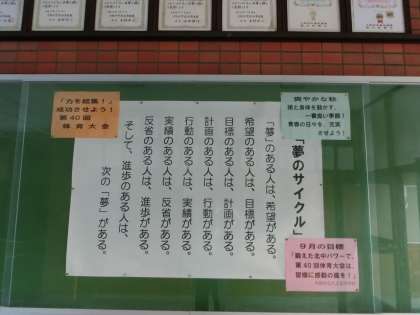 「夢のサイクル」
「夢」のある人は、希望がある。
希望のある人は、目標がある。
目標のある人は、計画がある。
計画のある人は、行動がある。
行動のある人は、実績がある。
実績のある人は、反省がある。
反省のある人は、進歩がある。
そして、進歩のある人は、
次の「夢」がある。
「力を結集！」
成功させよう！
第４０回
体育大会
爽やかな秋
頭と身体を動かす、
一番良い季節！
青春の日々を、充実
させよう！
９月の目標
「鍛えた北中パワーで、
第４０回体育大会は、
皆様に感動の風を！」